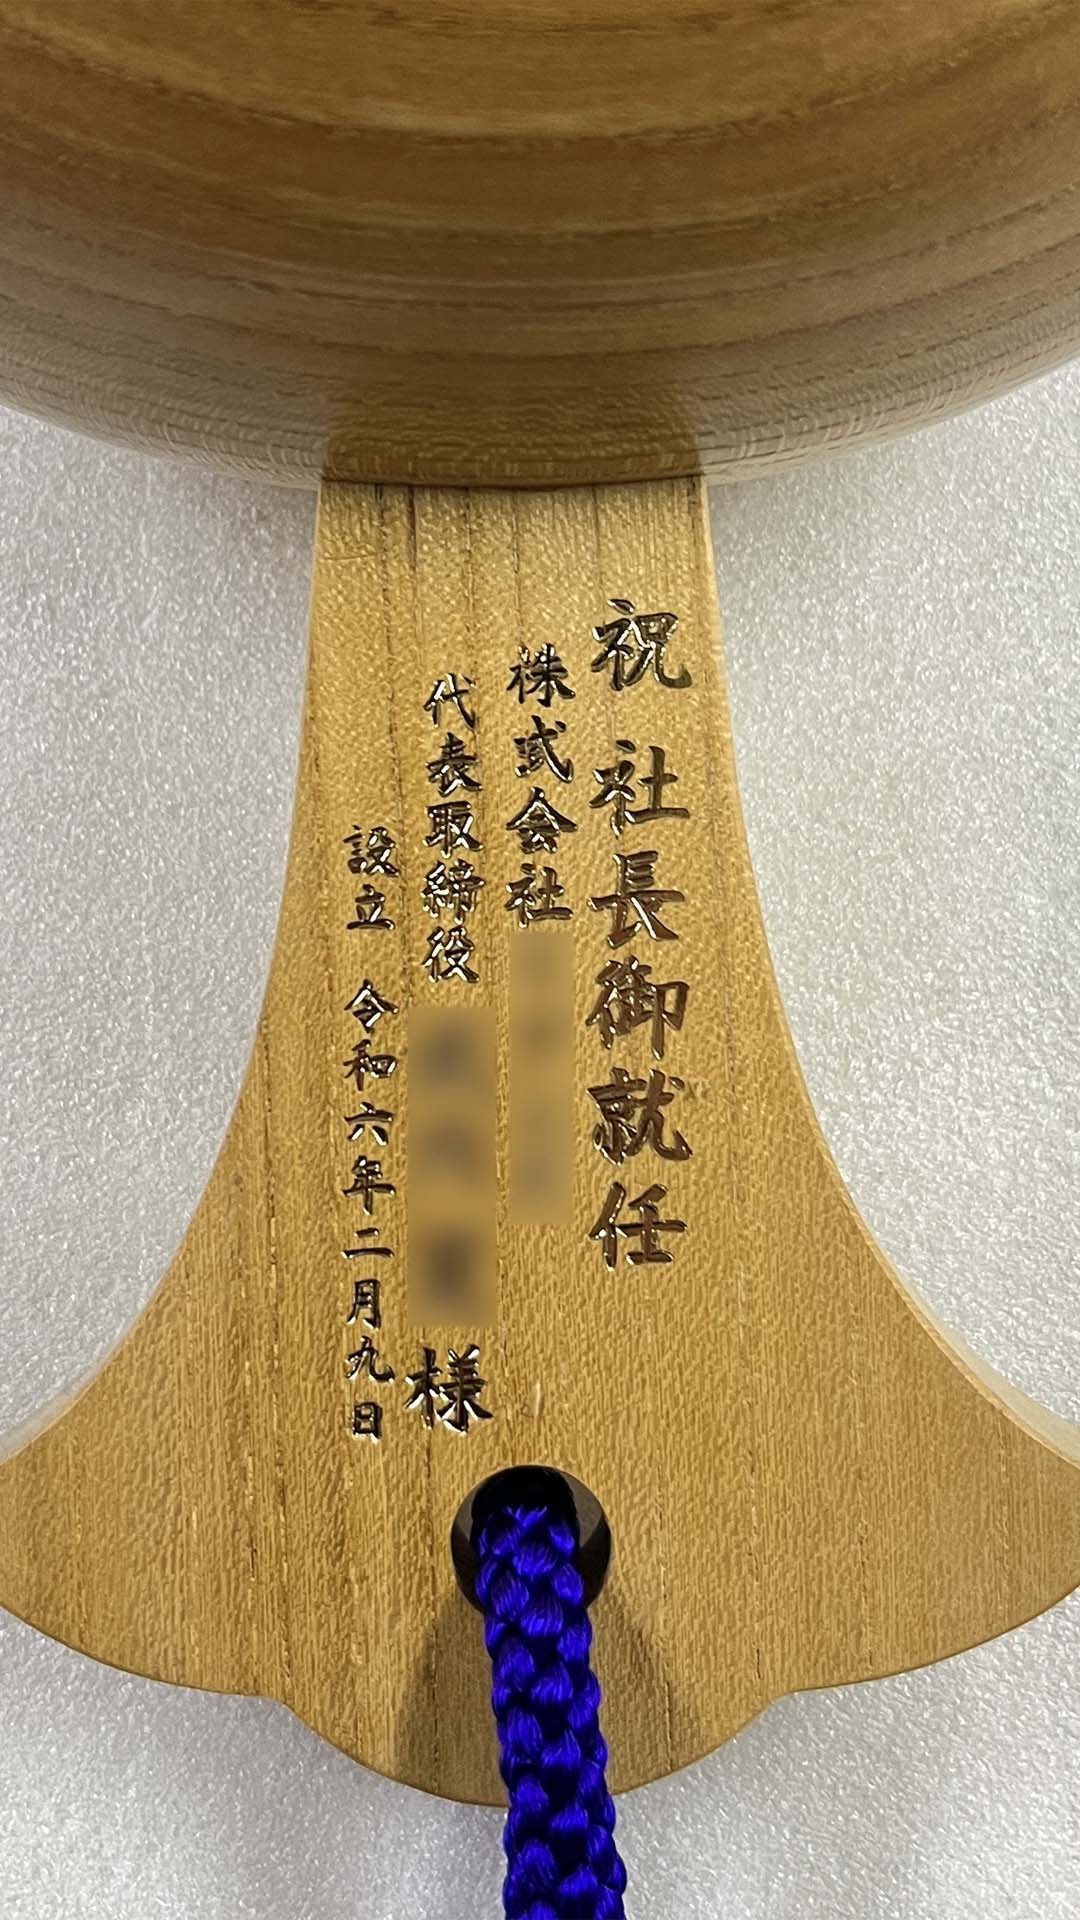 祝 社長御就任
株式会社
代表取締役 様
設立 令和六年二月九日